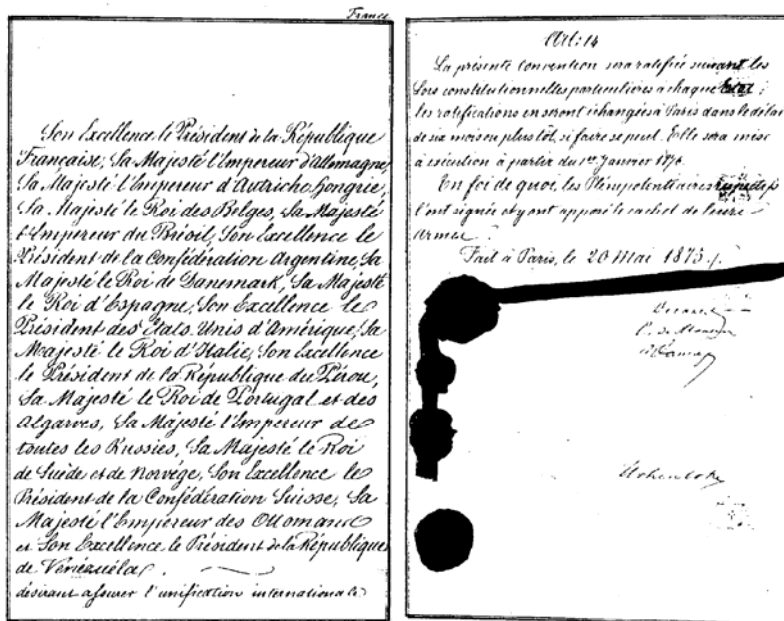 France
Son Excellence le Président de la République
Française, Sa Majesté l'Empereur d'Allemagne,
Sa Majesté l'Empereur d'Autriche-Hongrie,
Sa Majesté le Roi des Belges, Sa Majesté
l'Empereur du Brésil, Son Excellence le
Président de la Confédération Argentine, Sa
Majesté le Roi de Danemark, Sa Majesté
le Roi d'Espagne, Son Excellence le
Président des Etats-Unis d'Amérique, Sa
Majesté le Roi d'Italie, Son Excellence
le Président de la République du Pérou,
Sa Majesté le Roi de Portugal et des
Algarves, Sa Majesté l'Empereur de
toutes les Russies, Sa Majesté le Roi
de Suède et de Norvège, Son Excellence le
Président de la Confédération Suisse, Sa
Majesté l'Empereur des Ottomans
et Son Excellence le Président de la République
de Vénézuéla,
désirant assurer l'unification internationale
Art: 14
La présente Convention sera ratifiée suivant les
lois constitutionnelles particulières à chaque Etat;
les ratifications en seront échangées à Paris dans le délai
de six mois ou plus tôt, si faire se peut. Elle sera mise
à exécution à partir du 1er Janvier 1876.
En foi de quoi, les Plénipotentiaires respectifs
l'ont signée et y ont apposé le cachet de leurs
armes.
Fait à Paris, le 20 Mai 1875.
Decazes
Hohenlohe